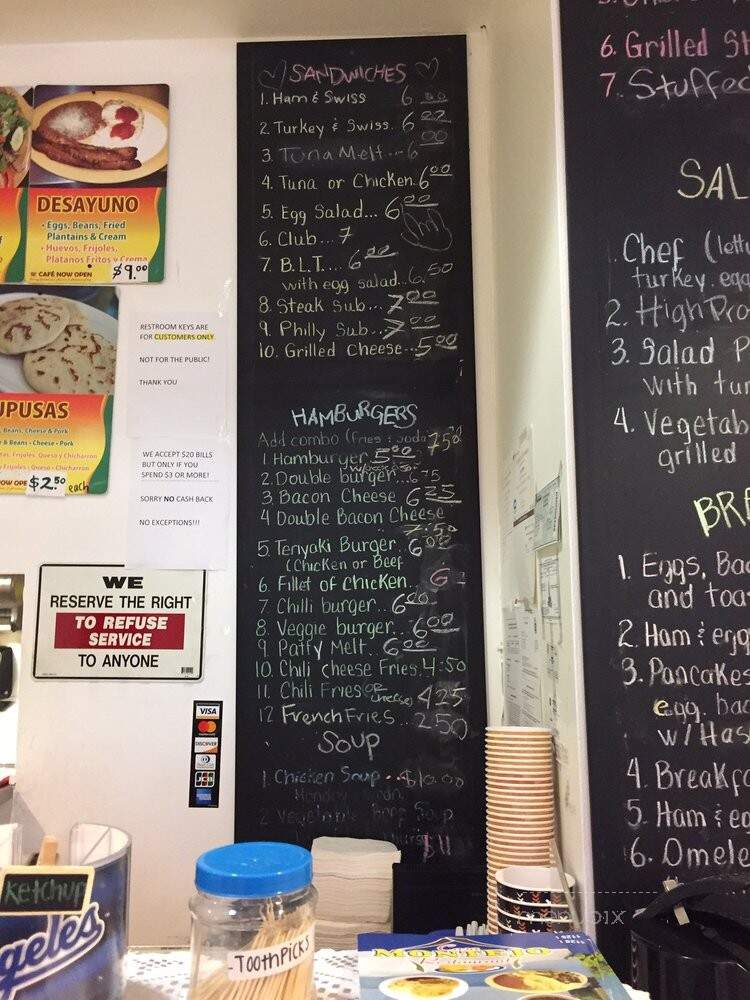 DESAYUNO
• Eggs, Beans, Fried
Plantains & Cream
• Huevos, Frijoles,
Platanos Fritos y Crema
CAFÉ NOW OPEN $9.00
UPUSAS
Beans, Cheese & Pork
& Beans • Cheese • Pork
Frijoles, Queso y Chicharron
Frijoles • Queso • Chicharron
OW OPEN $2.50 each
RESTROOM KEYS ARE
FOR CUSTOMERS ONLY
NOT FOR THE PUBLIC!
THANK YOU
WE ACCEPT $20 BILLS
BUT ONLY IF YOU
SPEND $3 OR MORE!
SORRY NO CASH BACK
NO EXCEPTIONS!!!
WE
RESERVE THE RIGHT
TO REFUSE
SERVICE
TO ANYONE
VISA
DISCOVER
JCB
SANDWICHES
1. Ham & Swiss 6.00
2. Turkey & Swiss. 6
3 Tuna Melt... 6 00
4. Tuna or Chicken. 6 00
5. Egg Salad... 6 00
6. Club... 7
7. B.L.T.... 6 00
with egg salad.. 6.50
8. Steak Sub... 7 00
9. Philly Sub.. 7 00
10. Grilled Cheese.. 5 00
HAMBURGERS
Add combo (fries & soda 750
1 Hamburger 5 00
2. Double burger.. 6 75
3 Bacon Cheese 6 25
4 Double Bacon Cheese
7.50
5. Teriyaki Burger.. 6 00
(Chicken or Beef
6. Fillet of chicken... 6
7 Chilli burger.. 6 00
8. Veggie burger... 6 00
9. Patty Melt.. 6 00
10. Chili cheese Fries. 4.50
11. Chili Fries (or cheese) 4 25
12 French Fries... 2 50
SOUP
1. Chicken Soup.. $10.00
2 Vegetable Beef Soup
$11
6. Grilled
7. Stuffed
SAL
Chef (lett
turkey. egg
2. High Pro
3. Salad P
with tu
4. Vegetab
grilled
BRE
1. Eggs, Bac
and toa
2. Ham & egg
3. Pancakes
egg. bac
w/ Has
4. Breakf
5. Ham & eg
6. Omele
Ketchup
geles
-TOOTHPICKS
MONTEJO
Restaurant